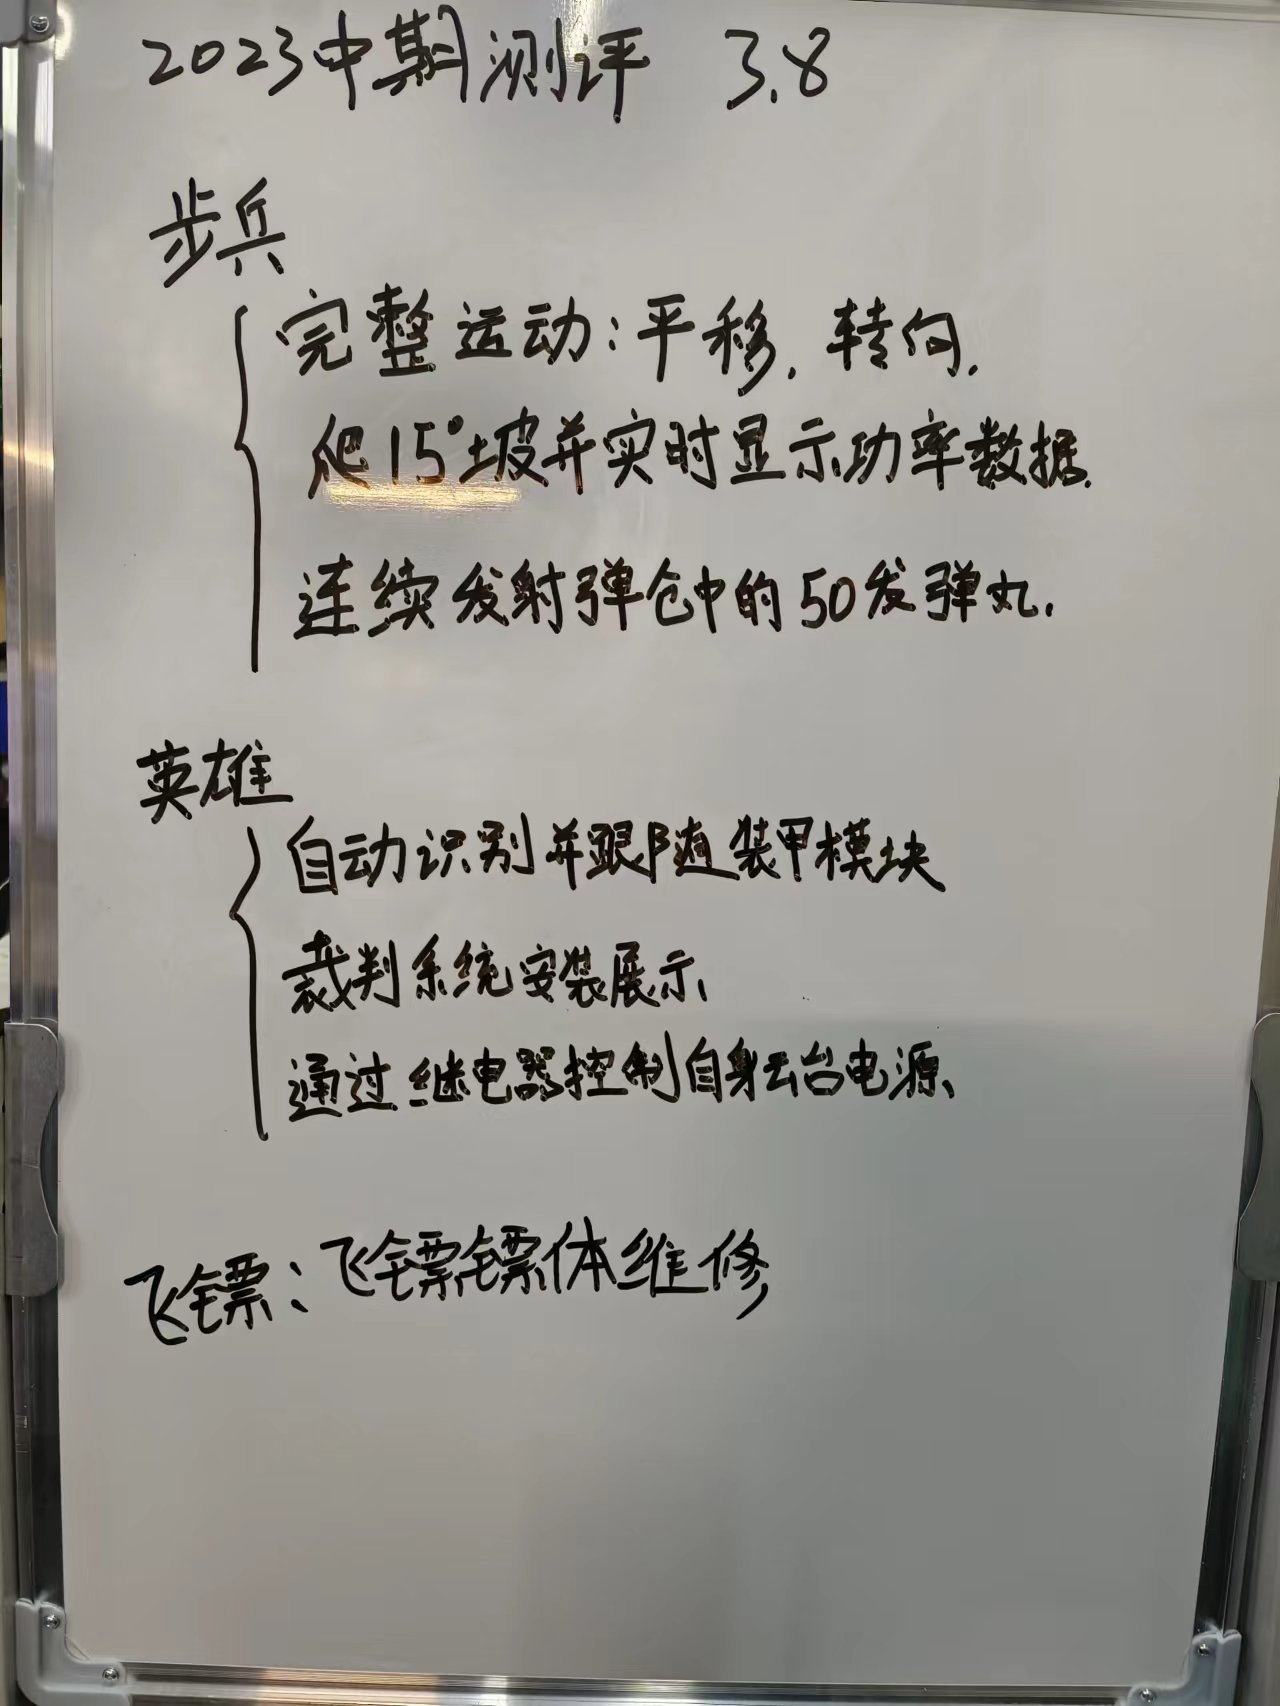 2023中期测评 3.8
步兵
完整运动:平移,转向.
爬15°坡并实时显示功率数据.
连续发射弹仓中的50发弹丸.
英雄
自动识别并跟随装甲模块
裁判系统安装展示、
通过继电器控制自身云台电源、
飞镖:飞镖镖体维修